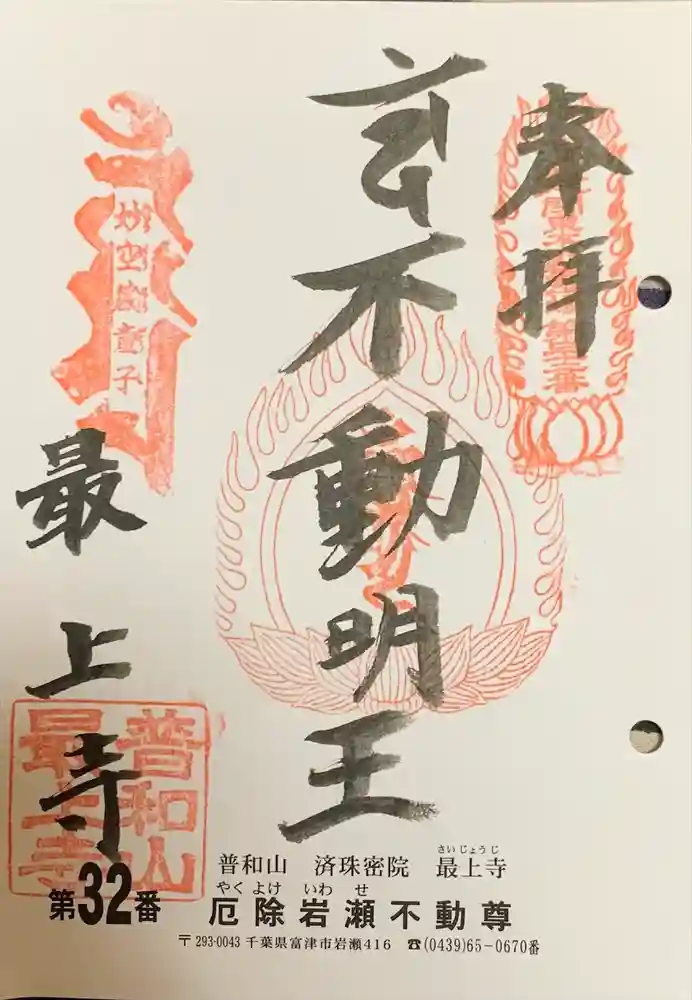 奉拝
不動明王
最上寺
妙空蔵童子
普和山
最上寺
普和山 済珠密院 最上寺
さいじょうじ
第32番
厄除岩瀬不動尊
やくよけ いわせ
〒293-0043 千葉県富津市岩瀬416 ☎(0439)65-0670番